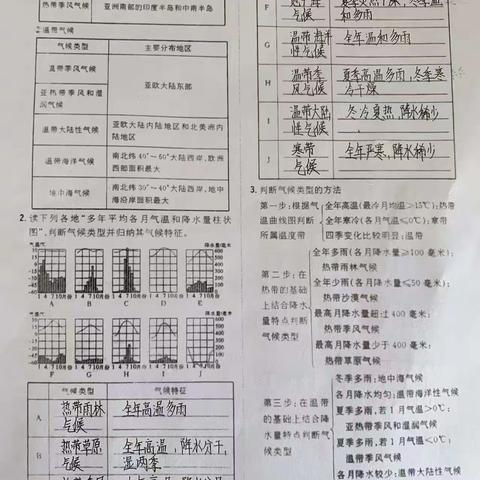 热带季风气候
亚洲南部的印度半岛和中南半岛
温带气候
气候类型
主要分布地区
温带季风气候
亚热带季风和湿
润气候
亚欧大陆东部
温带大陆性气候
亚欧大陆内陆地区和北美洲内
陆地区
温带海洋气候
南北纬40°-60°大陆西岸,欧洲
西部面积最大
地中海气候
南北纬30°-40°大陆西岸,地中
海沿岸面积最大
2. 读下列各地“多年平均各月气温和降水量柱状
图”,判断气候类型并归纳其气候特征。
气温℃
降水量/毫米
1 4 7 10月份
A B C D E
F G H I J
气候类型
气候特征
A
热带雨林
气候
全年高温多雨
B
热带草原
气候
全年高温,降水分干,
湿两季
气候
和多雨
G
温带海洋
性气候
全年温和多雨
H
温带季
风气候
夏季高温多雨,冬季寒
冷干燥
I
温带大陆
性气候
冬冷夏热,降水稀少
J
寒带
气候
全年严寒,降水稀少
3. 判断气候类型的方法
第一步:根据气
温曲线图判断
所属温度带
全年高温(最冷月均温>15℃):热带
全年寒冷(各月气温≤0℃):寒带
四季变化比较明显:温带
第二步:在
热带的基础
上结合降水
量特点判断
气候类型
全年多雨(各月降水量≥100毫米):
热带雨林气候
全年少雨(各月降水量≤50毫米):
热带沙漠气候
最高月降水量超过400毫米:
热带季风气候
最高月降水量少于400毫米:
热带草原气候
第三步:在温带
的基础上结合降
水量特点判断气
候类型
冬季多雨:地中海气候
各月降水均匀:温带海洋性气候
夏季多雨,若1月气温>0℃:
亚热带季风和湿润气候
夏季多雨,若1月气温<0℃:
温带季风气候
各月降水较少:温带大陆性气候